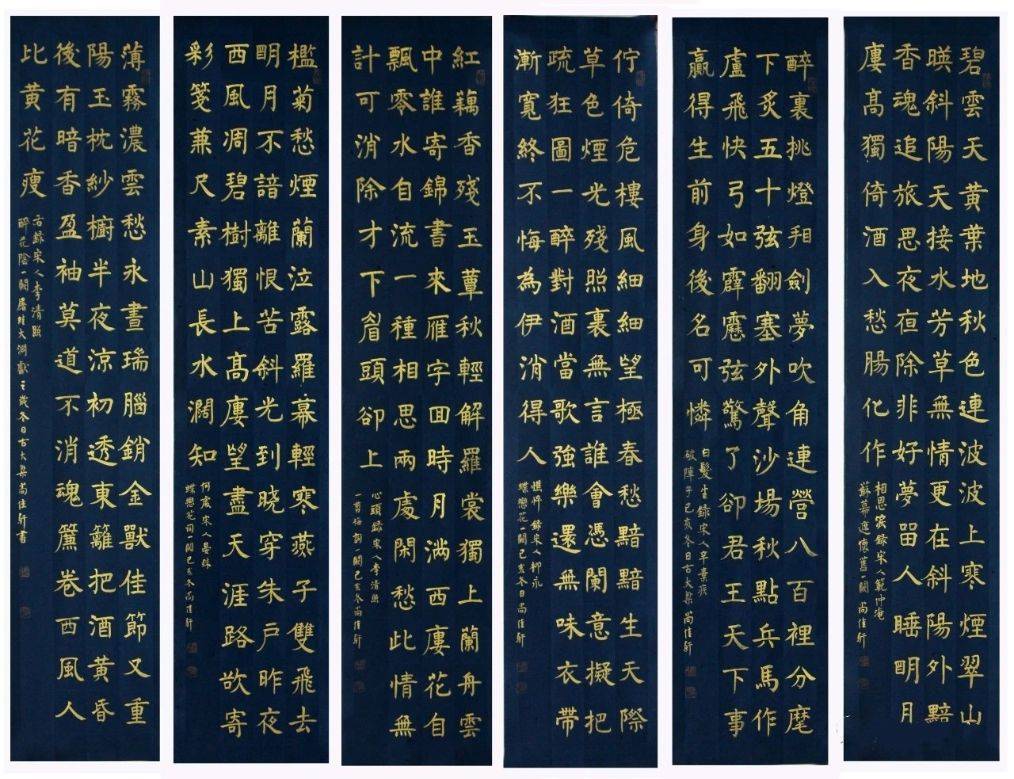 碧雲天黄葉地秋色連波波上寒煙翠山
暎斜陽天接水芳草無情更在斜陽外黯
香魂追旅思夜夜除非好夢畱人睡明月
廔高獨倚酒入愁腸化作
相思淚錄宋人範仲淹
蘇幕遮懷舊一闕 尚佳軒
醉裏挑燈看劍夢吹角連營八百裡分麾
下炙五十弦翻塞外聲沙場秋點兵馬作
盧飛快弓如霹靂弦驚了卻君王天下事
贏得生前身後名可憐
白髮生錄宋人辛棄疾
破陣子己亥冬日古大梁尚佳軒
佇倚危樓風細細望極春愁黯黯生天際
草色煙光殘照裏無言誰會憑闌意擬把
疏狂圖一醉對酒當歌強樂還無味衣帶
漸寬終不悔為伊消得人
憔悴 錄宋人柳永
蝶戀花一闕己亥冬日尚佳軒
紅藕香殘玉蕈秋輕解羅裳獨上蘭舟雲
中誰寄錦書來雁字回時月滿西廔花自
飄零水自流一種相思兩處閑愁此情無
計可消除才下眉頭卻上
心頭錄宋人李清照
一剪梅詞一闕己亥冬尚佳軒
檻菊愁煙蘭泣露羅幕輕寒燕子雙飛去
明月不諳離恨苦斜光到曉穿朱戶昨夜
西風凋碧樹獨上高廔望盡天涯路欲寄
彩箋兼尺素山長水濶知
何處宋人晏殊
蝶戀花詞一闕己亥冬尚佳軒
薄霧濃雲愁永晝瑞腦銷金獸佳節又重
陽玉枕紗櫥半夜涼初透東籬把酒黄昏
後有暗香盈袖莫道不消魂簾卷西風人
比黄花瘦
右錄宋人李清照
醉花陰一闕 冬日古大梁尚佳軒書